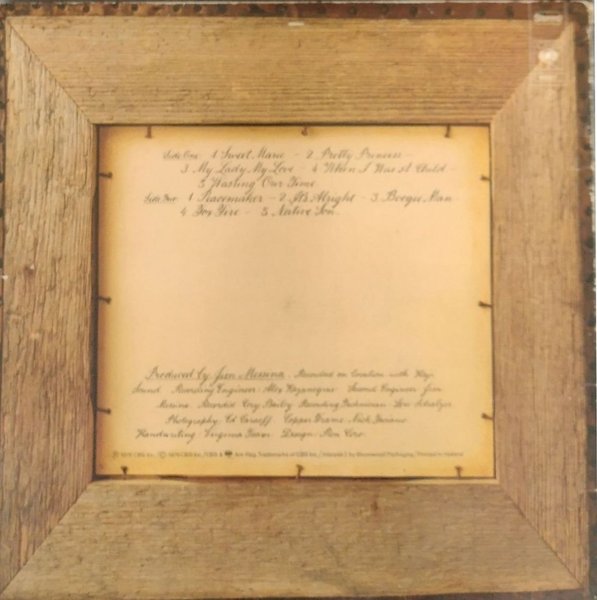 Side One 1 Sweet Marie - 2 Pretty Princess -
3 My Lady, My Love - 4 When I Was A Child -
5 Wasting Our Time
Side Two 1 Peacemaker - 2 It's Alright - 3 Boogie Man
4 Fox Fire - 5 Native Son.
Produced by Jim Messina. Recorded on Location with
Sound Recording Engineer: Alex Kazanegras Second Engineer: Jim
Messina Recordist Corey Bailey Recording Technician:
Photography: Ed Caraeff Copper Frame: Nick
Handwriting Virginia Design: Ron Coro
℗ 1976 CBS Inc. / © 1976 CBS Inc. / CBS & Are Reg. Trademarks of CBS Inc. / Printed in Holland